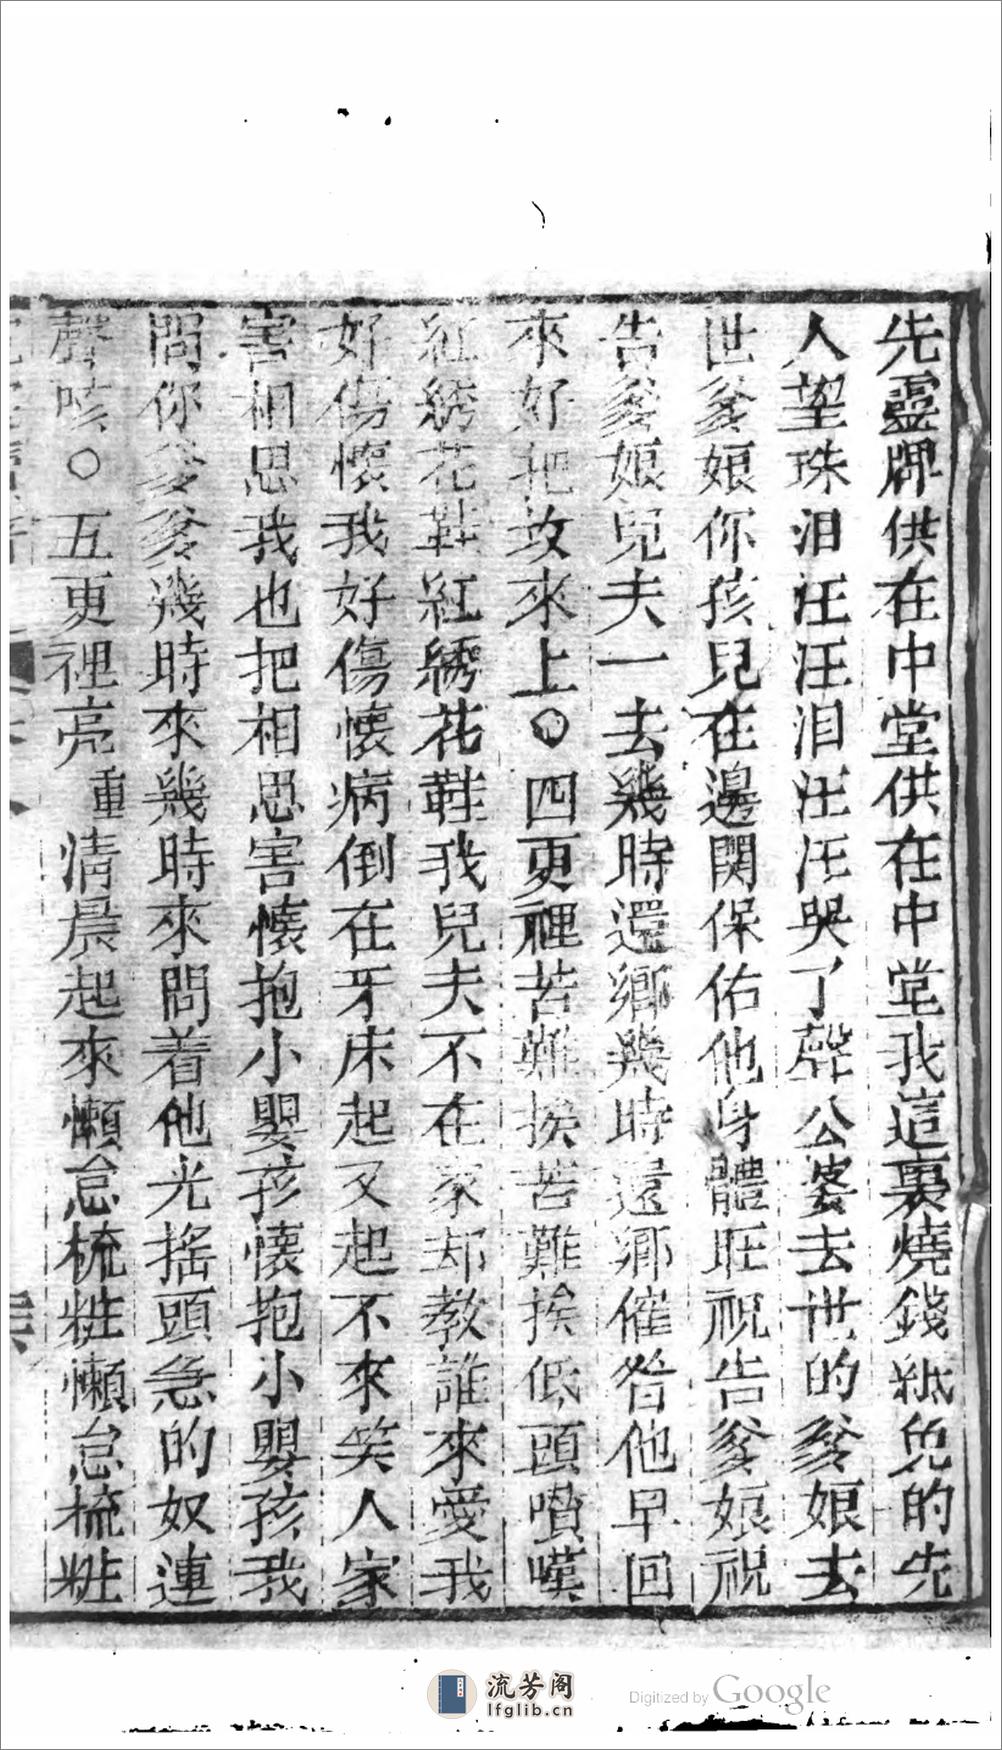 先靈牌供在中堂供在中堂我這裏燒錢紙免的先
人望珠泪汪汪泪汪汪哭了聲公婆去世的爹娘去
世爹娘你孩兒在邊関保佑他身體旺祝告爹娘祝
告爹娘兒夫一去幾時還鄉幾時還鄉催昝他早回
來好把坟來上〇四更裡苦難挨苦難挨低頭噴嘆
紅綉花鞋紅綉花鞋我兒夫不在家却教誰來愛我
好傷懷我好傷懷病倒在牙床起又起不來笑人家
害相思我也把相思害懷抱小嬰孩懷抱小嬰孩我
問你爹爹幾時來幾時來問着他光搖頭急的奴連
聲咳〇五更裡亮重清晨起來懶怠梳粧懶怠梳粧
流芳阁
lfglib.cn
Digitized by Google